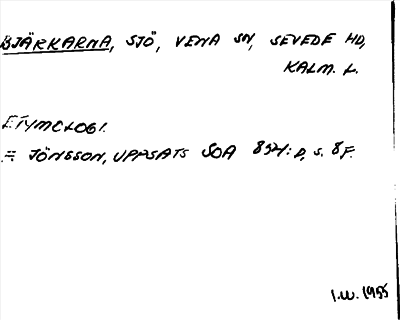 BJÄRKARNA, SJÖ, VENA SN, SEVEDE HD,
KALM. L.
ETYMOLOGI.
= JÖNSSON, UPPSATS SOA 894: D, S. 8 F.
I.W. 1955